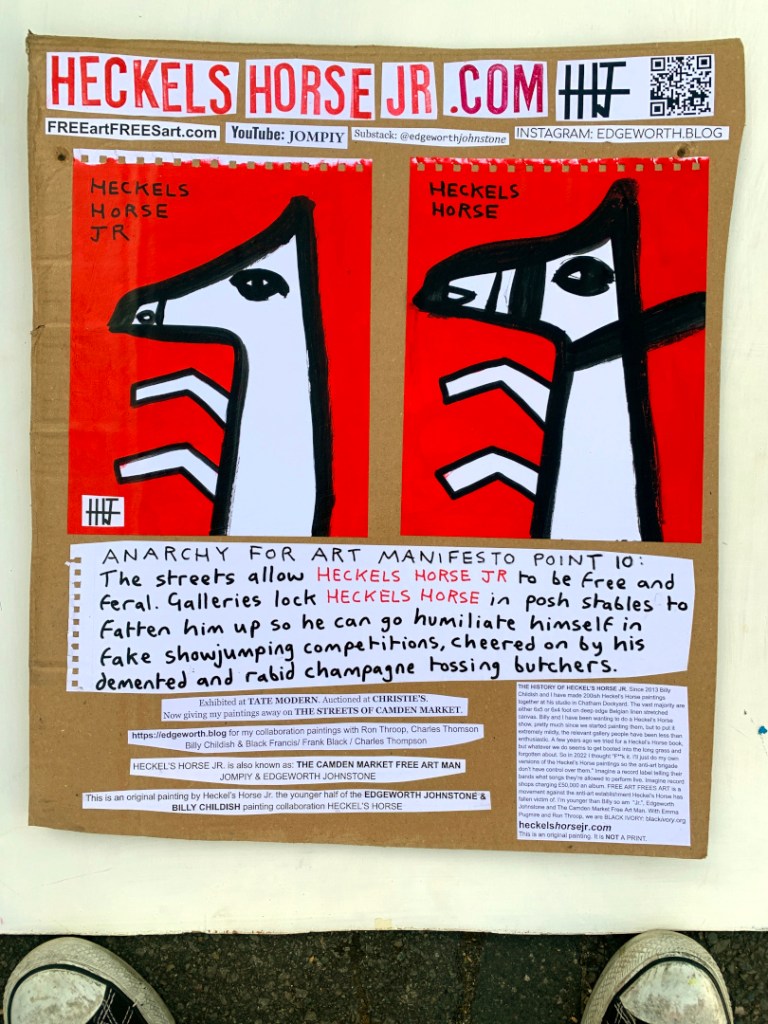 HECKELS HORSE JR .COM
FREEartFREESart.com
YouTube: JOMPIY
Substack: @edgeworthjohnstone
INSTAGRAM: EDGEWORTH.BLOG
HECKELS
HORSE
JR
HECKELS
HORSE
ANARCHY FOR ART MANIFESTO POINT 10:
The streets allow HECKELS HORSE JR to be free and
feral. Galleries lock HECKELS HORSE in posh stables to
fatten him up so he can go humiliate himself in
fake showjumping competitions, cheered on by his
demented and rabid champagne tossing butchers.
Exhibited at TATE MODERN. Auctioned at CHRISTIE'S.
Now giving my paintings away on THE STREETS OF CAMDEN MARKET.
https://edgeworth.blog for my collaboration paintings with Ron Throop, Charles Thomson
Billy Childish & Black Francis/ Frank Black / Charles Thompson
HECKEL'S HORSE JR. is also known as: THE CAMDEN MARKET FREE ART MAN
JOMPIY & EDGEWORTH JOHNSTONE
This is an original painting by Heckel's Horse Jr. the younger half of the EDGEWORTH JOHNSTONE &
BILLY CHILDISH painting collaboration HECKEL'S HORSE
THE HISTORY OF HECKEL'S HORSE JR. Since 2013 Billy
Childish and I have made 200ish Heckel's Horse paintings
together at his studio in Chatham Dockyard. The vast majority are
either 6x8 or 6x4 foot on deep edge Belgian linen stretched
canvas. Billy and I have been wanting to do a Heckel's Horse
show, pretty much since we started painting them, but to put it
extremely mildly, the relevant gallery people have been less than
enthusiastic. A few years ago we tried for a Heckel's Horse book,
but whatever we do seems to get booted into the long grass and
forgotten about. So in 2022 I thought "F**k it. I'll just do my own
versions of the Heckel's Horse paintings so the anti-art brigade
don't have control over them." Imagine a record label telling their
bands what songs they're allowed to perform live. Imagine record
shops charging £50,000 an album. FREE ART FREES ART is a
movement against the anti-art establishment Heckel's Horse has
fallen victim of. I'm younger than Billy so am "Jr.". Edgeworth
Johnstone and The Camden Market Free Art Man. With Emma
Pugmire and Ron Throop, we are BLACK IVORY: blackivory.org
heckelshorsejr.com
This is an original painting. It is NOT A PRINT.